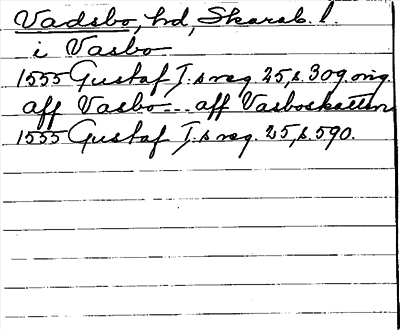 Vadsbo, hd, Skarab. l.
i Vasbo
1555 Gustaf I.s reg. 25, s. 309 orig.
aff Vasbo... aff Vasboskatten
1555 Gustaf I.s reg. 25, s. 590.